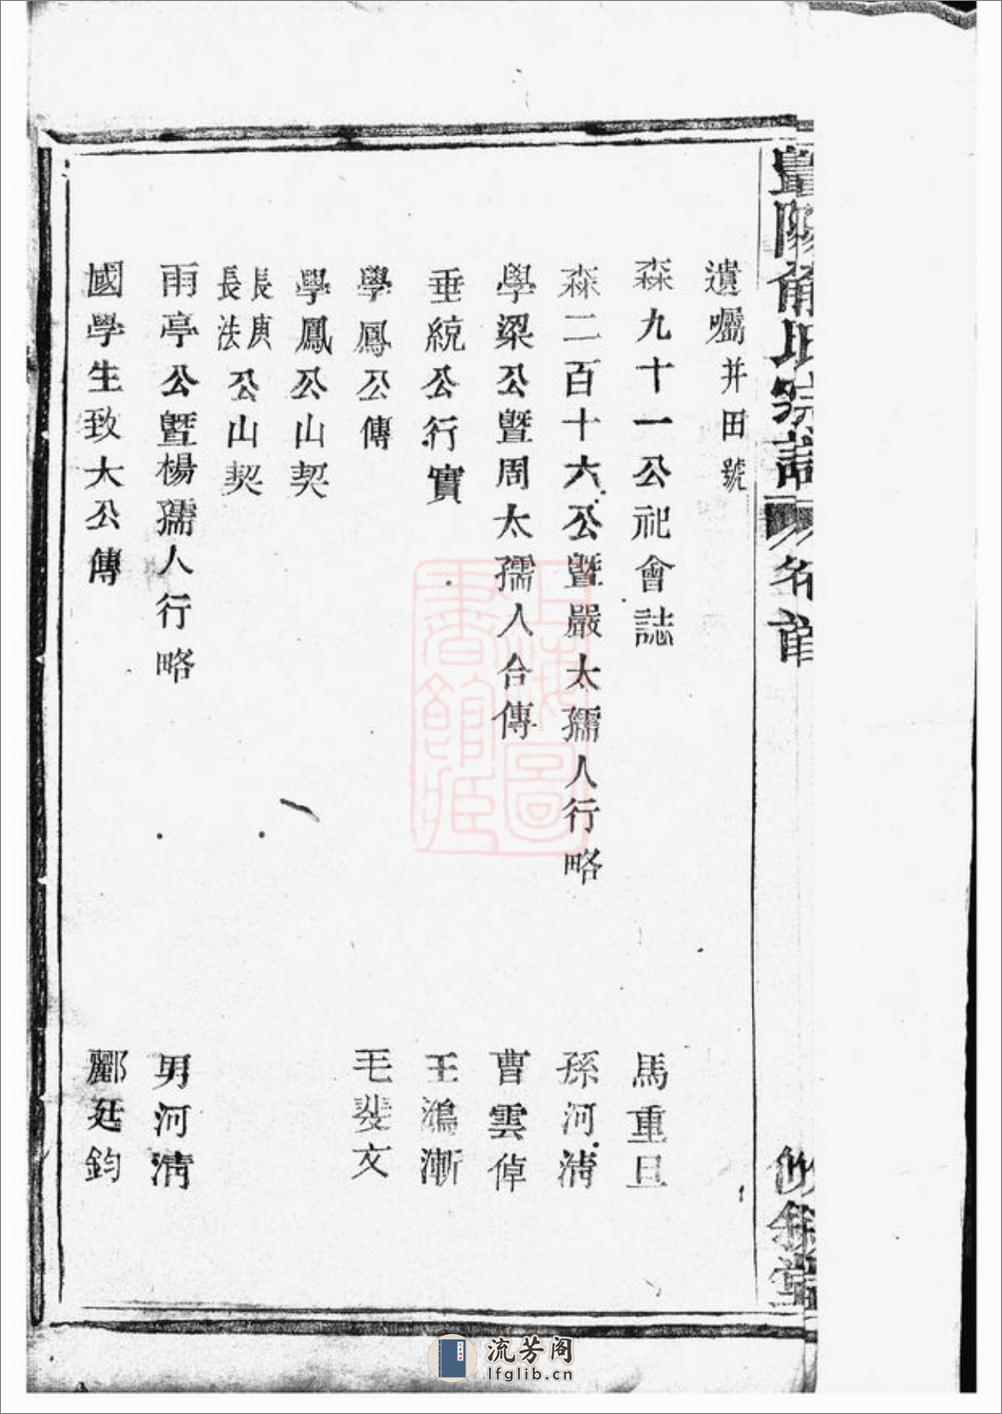 遺囑并田號
森九十一公祀會誌 馬重旦
森二百十六公曁嚴太孺人行略 孫河清
學梁公曁周太孺人合傳 曹雲倬
垂統公行實 王鴻漸
學鳳公傳 毛斐文
學鳳公山契
長庚長法公山契
雨亭公曁楊孺人行略 男河清
國學生致大公傳 酈廷鈞
上海圖書館藏
流芳阁
lfglib.cn